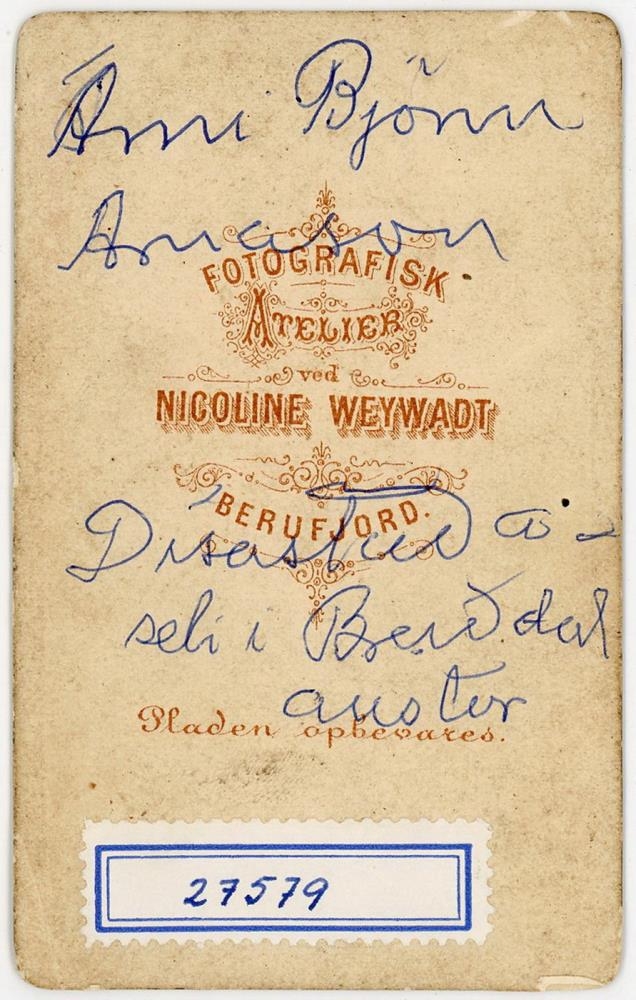 Árni Björn
Arnason
FOTOGRAFISK
ATELIER
ved
NICOLINE WEYWADT
BERUFJORD.
seli i Breiðdal
austur
Pladen opbevares.
27579